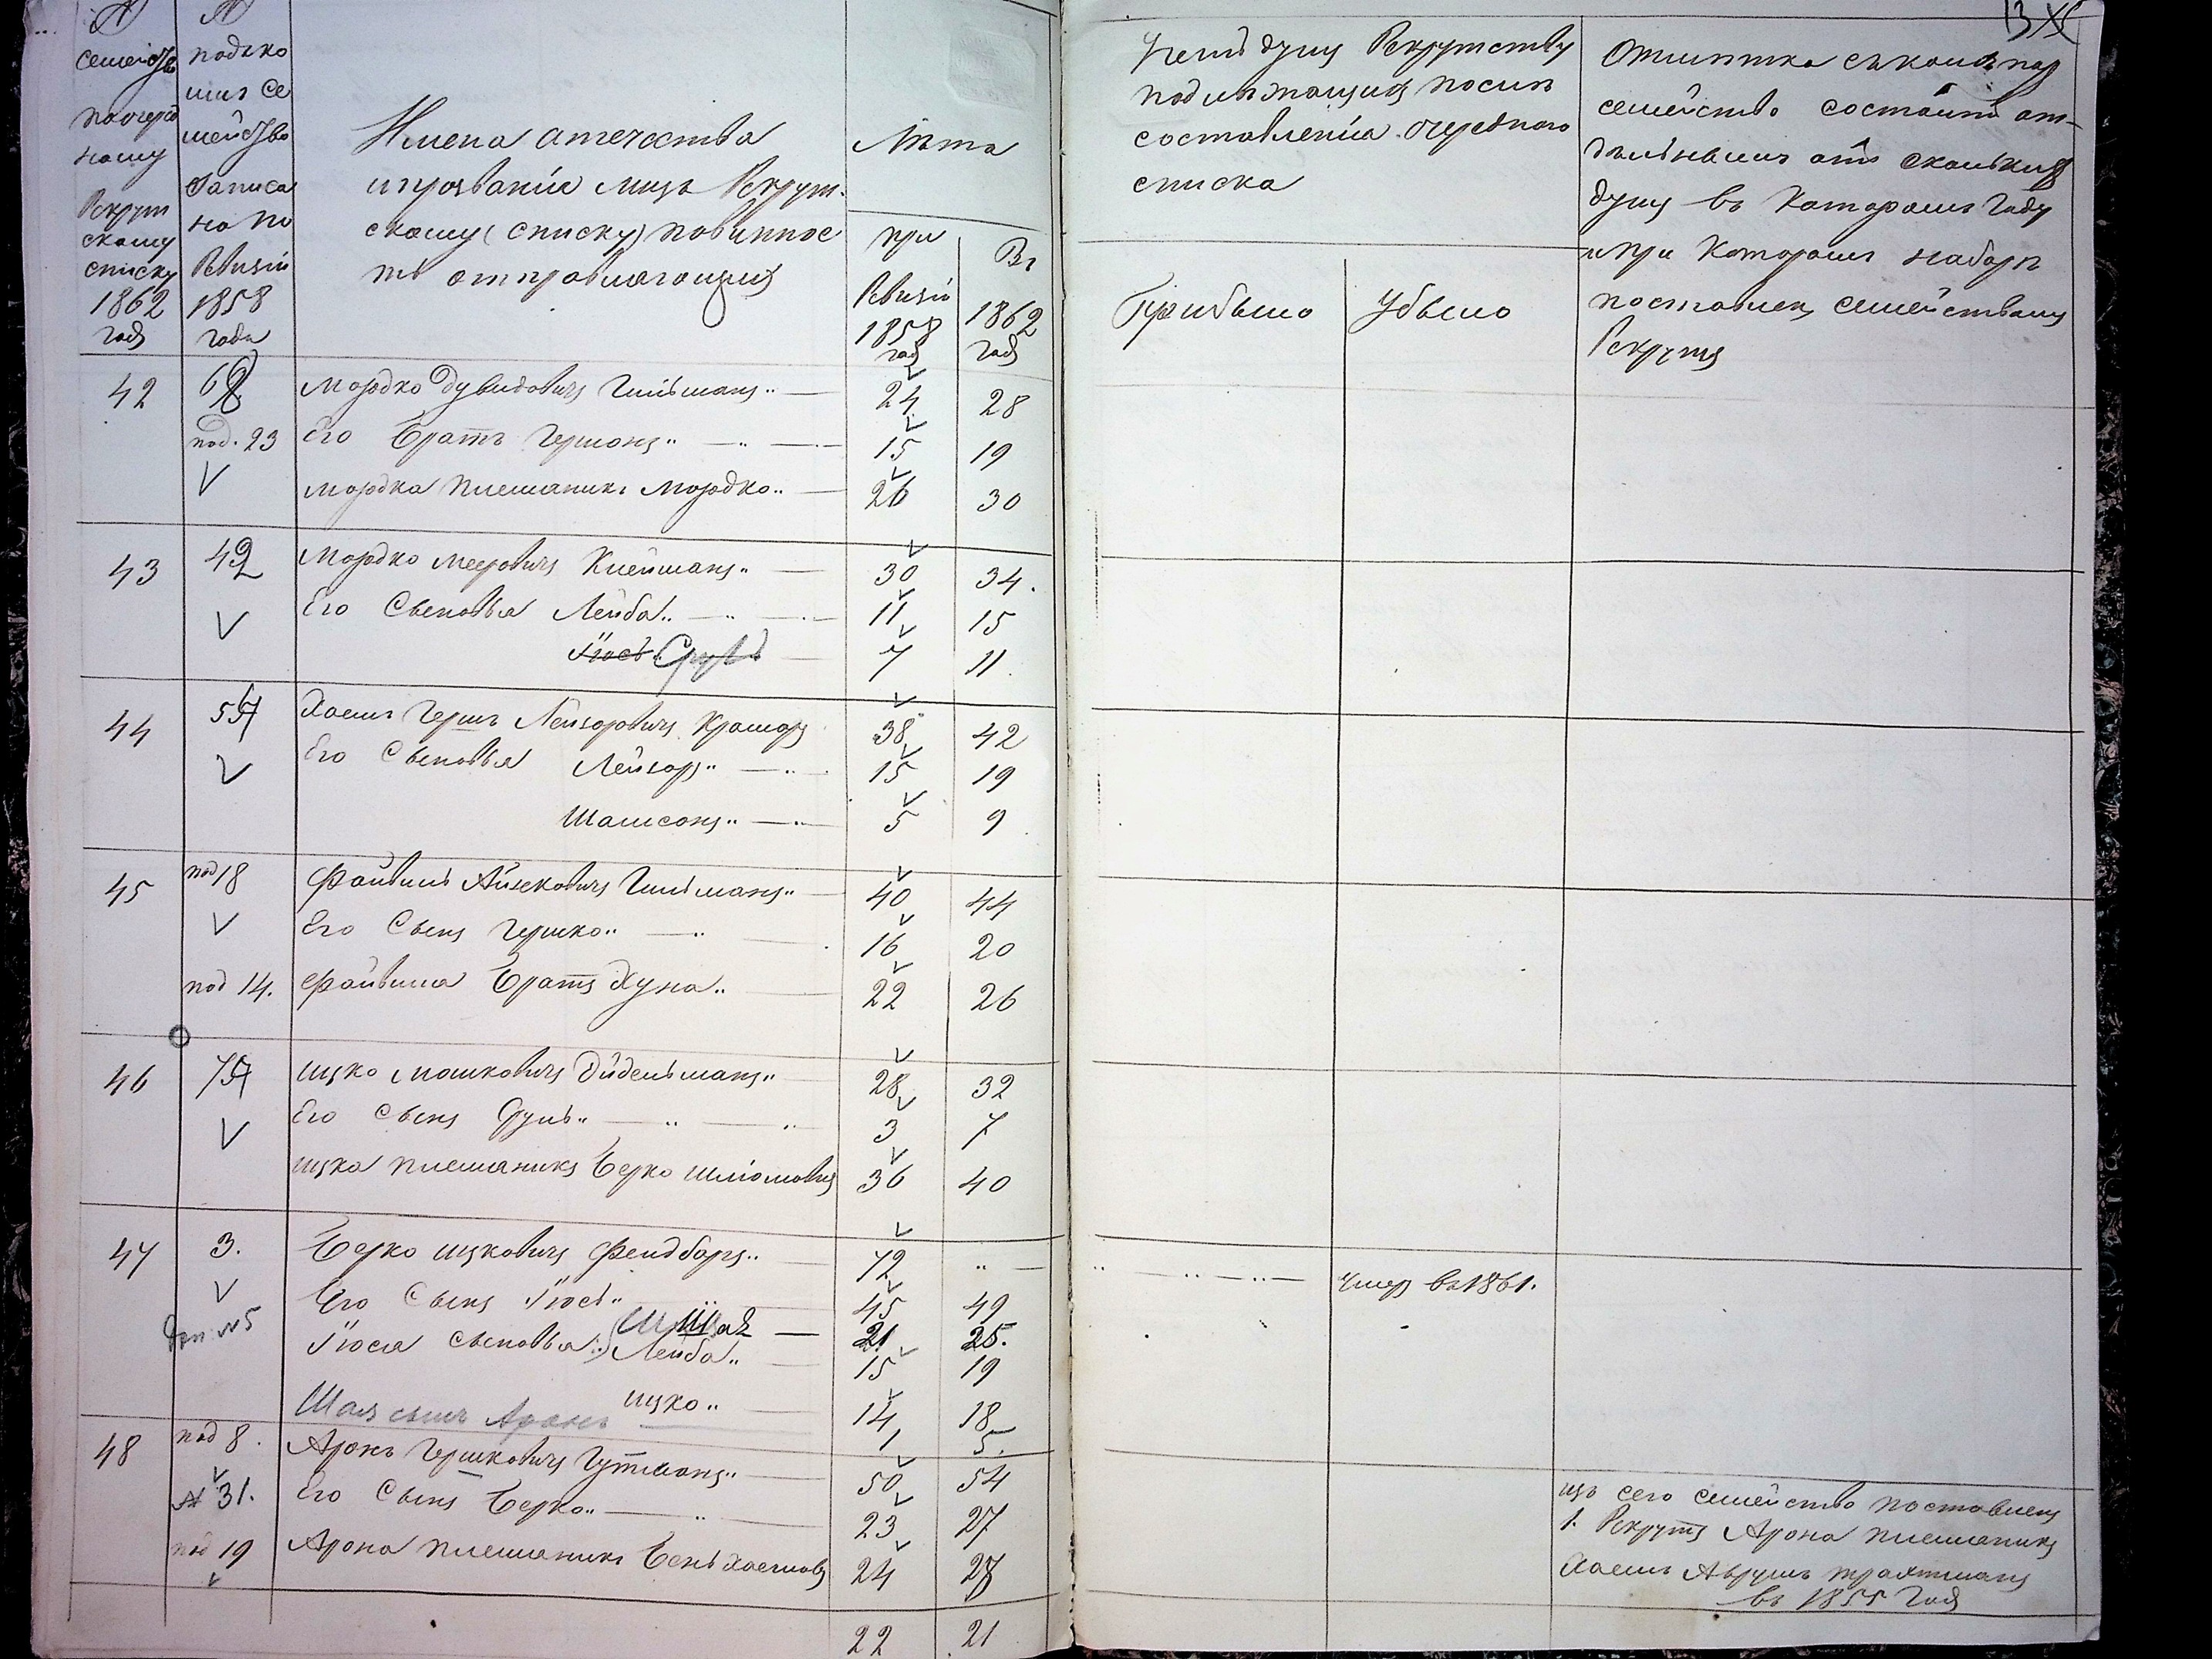 № семейств по очередному Рекрутскому списку 1862 годъ
№ подъ коимъ семейство записано по Ревизіи 1858 года
Имена отечества
и прозванія лицъ Рекрут-
скому (списку) повиннос
ть отправляющихъ
Лѣта
при Ревизіи 1858 годъ
Въ 1862 годъ
душъ Рекрутству
подлежащихъ после
составленія очереднаго
списка
Прибыло
Убыло
13
Отметка
семейство состоитъ от-
дельнымъ отъ сколькихъ
душъ въ которомъ году
и при которомъ наборе
поставленъ семействомъ
Рекрутъ
42 Мордко Дувидовичъ Гильманъ 24 28
под. 23 Его Братъ Гершонъ 15 19
Мордка племяникъ Мордко 26 30
43 42 Мордко Мееровичъ Клейманъ 30 34.
Его Сыновья Лейба 11 15
Іось Сруль 7 11.
44 Хаимъ Гершъ Лейзоровичъ Крамаръ 38 42
Его Сыновья Лейзоръ 15 19
Шамсонъ 5 9
45 под 18 Файвель Айзековичъ Гильманъ 40 44
Его Сынъ Гершко 16 20
под 14. Файвеля Братъ Хуна 22 26
46 Ицко Мошковичъ Эйдельманъ 28 32
Его Сынъ Сруль 3 7
Ицка племяникъ Берко Шліомовъ 36 40
47 3. Берко Ицковичъ Фельдбаргъ 72 умеръ въ 1861.
Его Сынъ Іось 45 49
№ 5 Іося сыновья: 21 25.
Лейба 15 19
Ицко 14 18
сынъ Аронъ 1 5.
48 под 8. Аронъ Гершковичъ Гутманъ 50 54
№ 31. Его Сынъ Берко 23 27
под 19 Арона племяникъ Бень Хаимовъ 24 28
изъ сего семейство поставленъ
1. Рекрутъ Арона племяникъ
Хаимъ Аврумъ Трахтманъ
въ 1855 годъ
22 21